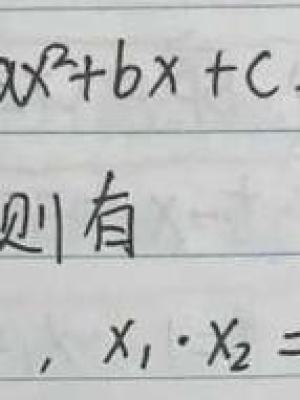 ax²+bx+c
则有
, x₁·x₂=